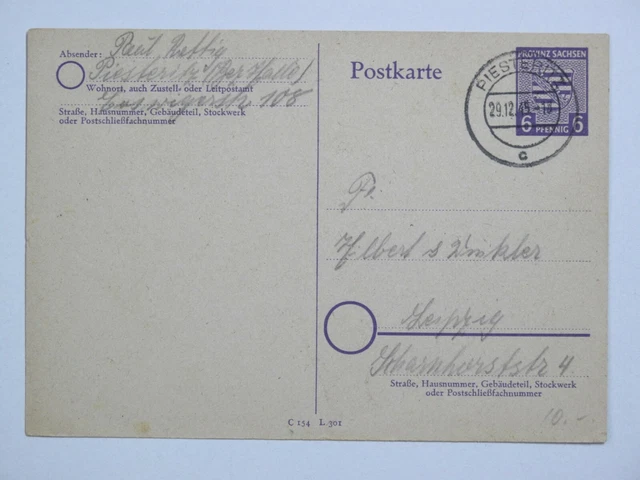 Absender: Paul Rettig
Piesteritz (Bez Halle)
Wohnort, auch Zustell- oder Leitpostamt
108
Straße, Hausnummer, Gebäudeteil, Stockwerk
oder Postschließfachnummer
Postkarte
PROVINZ SACHSEN
6 PFENNIG 6
PIESTERITZ
29.12.45
c
Fa.
Hilbert & Winkler
Leipzig
Scharnhorststr 4
Straße, Hausnummer, Gebäudeteil, Stockwerk
oder Postschließfachnummer
C 154 L 301
10.-